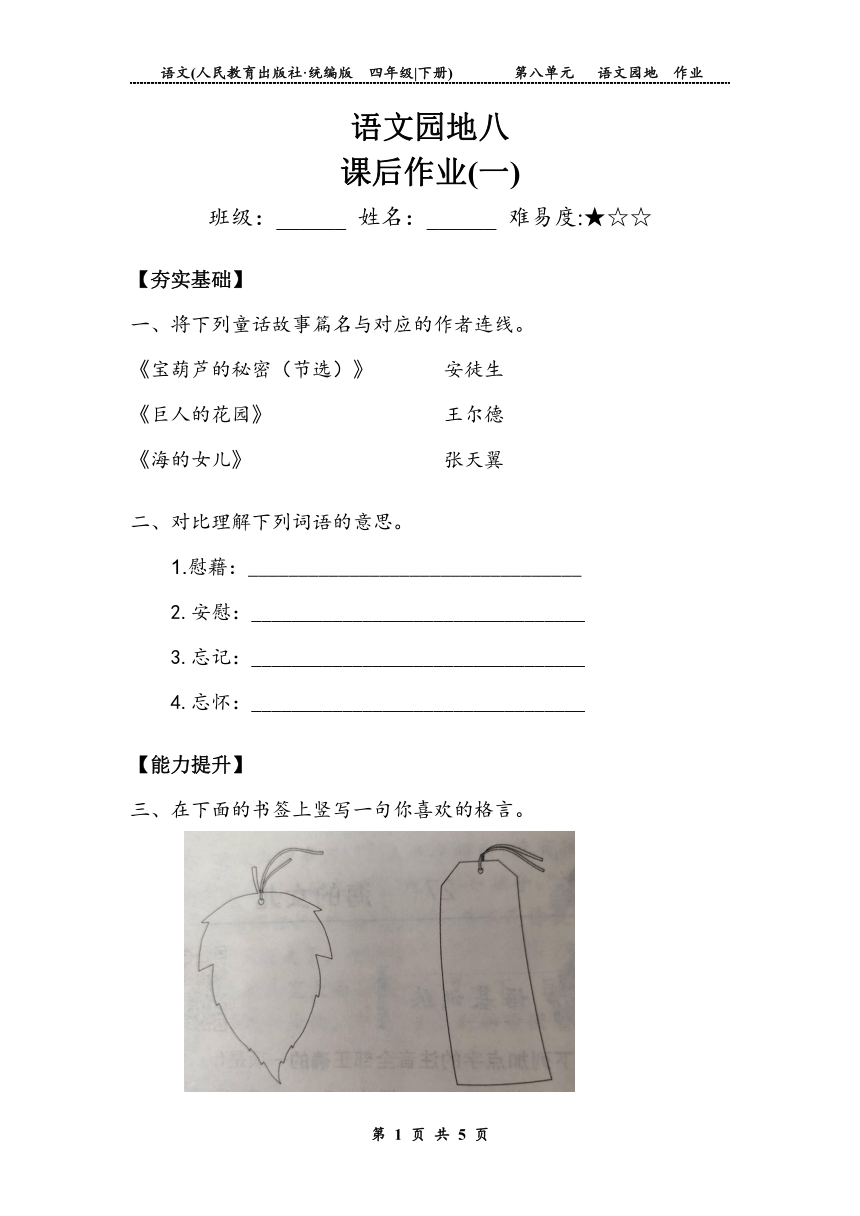 语文(人民教育出版社·统编版 四年级|下册) 第八单元 语文园地 作业
语文园地八
课后作业(一)
班级：______ 姓名：______ 难易度:★☆☆
【夯实基础】
一、将下列童话故事篇名与对应的作者连线。
《宝葫芦的秘密（节选）》 安徒生
《巨人的花园》 王尔德
《海的女儿》 张天翼
二、对比理解下列词语的意思。
1.慰藉：________________________________
2.安慰：________________________________
3.忘记：________________________________
4.忘怀：________________________________
【能力提升】
三、在下面的书签上竖写一句你喜欢的格言。
第 1 页 共 5 页